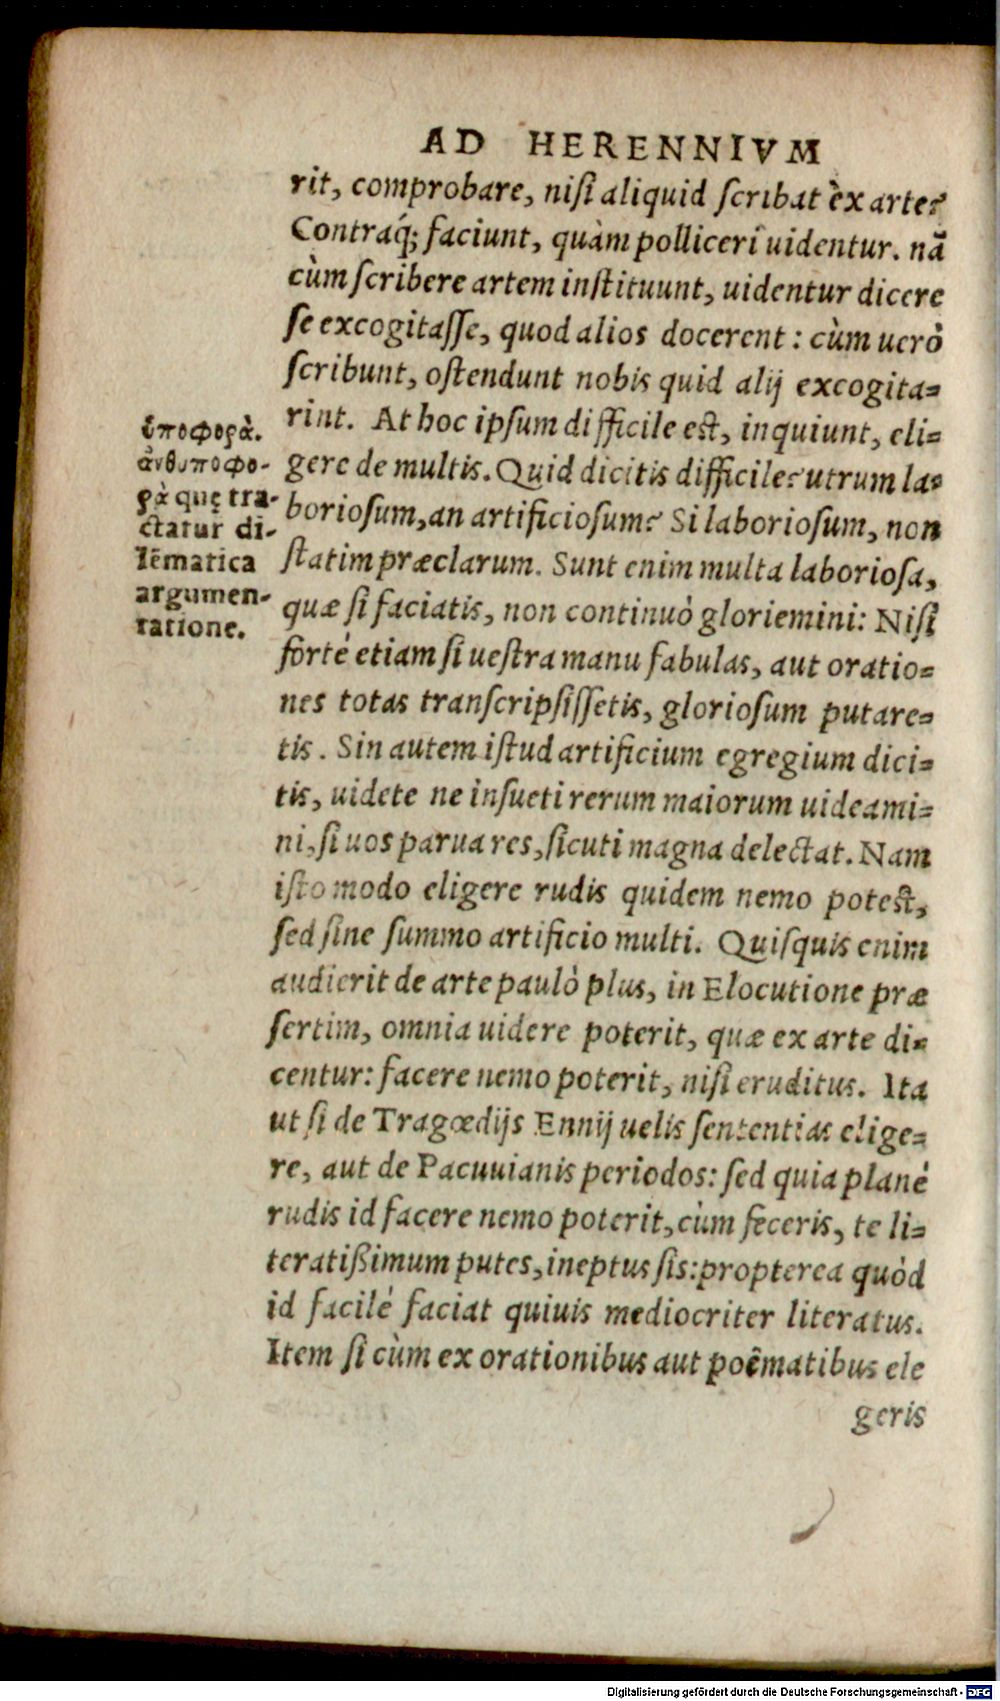 AD HERENNIVM
rit, comprobare, nisi aliquid scribat èx arte?
Contraq́; faciunt, quàm polliceri uidentur. nā
cùm scribere artem instituunt, uidentur dicere
se excogitasse, quod alios docerent: cùm uerò
scribunt, ostendunt nobis quid alij excogita=
rint. At hoc ipsum difficile est, inquiunt, eli=
gere de multis. Quid dicitis difficile? utrum la=
boriosum, an artificiosum? Si laboriosum, non
statim præclarum. Sunt enim multa laboriosa,
quæ si faciatis, non continuò gloriemini: Nisi
forté etiam si uestra manu fabulas, aut oratio=
nes totas transcripsissetis, gloriosum putare=
tis. Sin autem istud artificium egregium dici=
tis, uidete ne insueti rerum maiorum uideami=
ni, si uos parua res, sicuti magna delectat. Nam
isto modo eligere rudis quidem nemo potest,
sed sine summo artificio multi. Quisquis enim
audierit de arte paulò plus, in Elocutione præ
sertim, omnia uidere poterit, quæ ex arte di=
centur: facere nemo poterit, nisi eruditus. Ita
ut si de Tragœdijs Ennij uelis sententias elige=
re, aut de Pacuuianis periodos: sed quia planè
rudis id facere nemo poterit, cùm feceris, te li=
teratißimum putes, ineptus sis: propterea quòd
id facilé faciat quiuis mediocriter literatus.
Item si cùm ex orationibus aut poëmatibus ele
geris
ὑποφορὰ.
ἀνθυποφο-
ρὰ quę tra-
ctatur di-
lēmatica
argumen-
tatione.
Digitalisierung gefördert durch die Deutsche Forschungsgemeinschaft - DFG